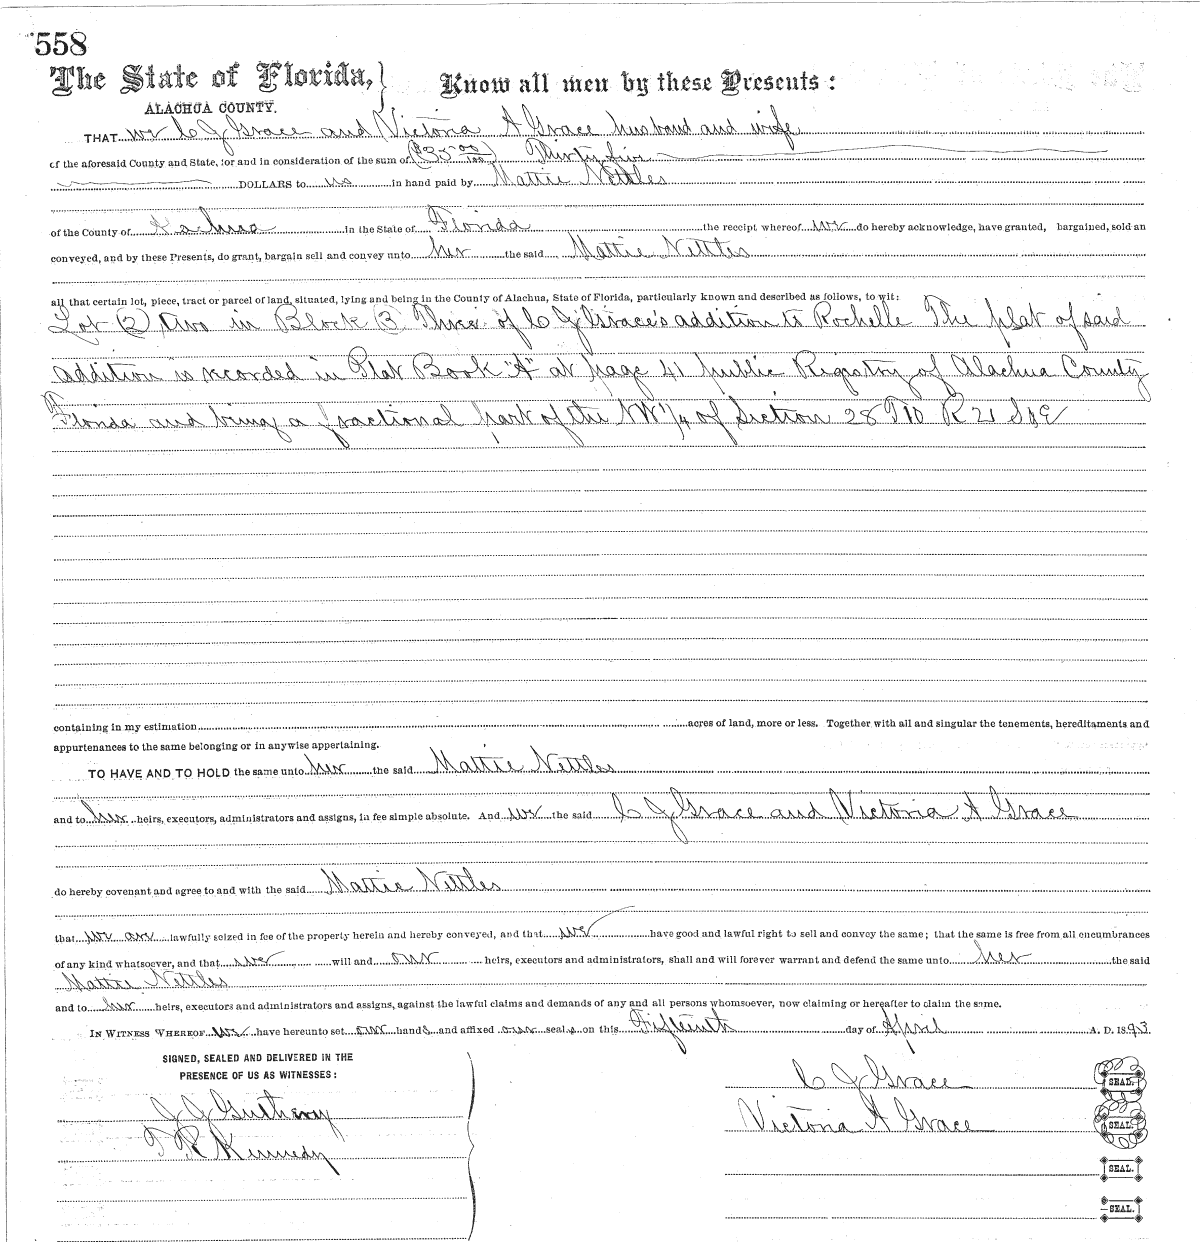 558
The State of Florida, Know all men by these Presents:
ALACHUA COUNTY.
THAT we C J Grace and Victoria A Grace husband and wife
of the aforesaid County and State, for and in consideration of the sum of ($35 00/100) Thirty five
DOLLARS to us in hand paid by Mattie Nettles
of the County of Alachua in the State of Florida the receipt whereof we do hereby acknowledge, have granted, bargained, sold an
conveyed, and by these Presents, do grant, bargain sell and convey unto her the said Mattie Nettles
all that certain lot, piece, tract or parcel of land, situated, lying and being in the County of Alachua, State of Florida, particularly known and described as follows, to wit:
Lot (2) two in Block (3 Three of C J Grace's addition to Rochelle The plat of said
addition is recorded in Plat Book "A" at page 41 public Registry of Alachua County
Florida and being a fractional part of the NW 1/4 of Section 28 T 10 R 21 S & E
containing in my estimation acres of land, more or less. Together with all and singular the tenements, hereditaments and
appurtenances to the same belonging or in anywise appertaining.
TO HAVE AND TO HOLD the same unto her the said Mattie Nettles
and to her heirs, executors, administrators and assigns, in fee simple absolute. And we the said C J Grace and Victoria A Grace
do hereby covenant and agree to and with the said Mattie Nettles
that we are lawfully seized in fee of the property herein and hereby conveyed, and that we have good and lawful right to sell and convey the same; that the same is free from all encumbrances
of any kind whatsoever, and that we will and our heirs, executors and administrators, shall and will forever warrant and defend the same unto her the said
Mattie Nettles
and to her heirs, executors and administrators and assigns, against the lawful claims and demands of any and all persons whomsoever, now claiming or hereafter to claim the same.
IN WITNESS WHEREOF we have hereunto set our hands and affixed our seals on this Fifteenth day of April A. D. 1893.
SIGNED, SEALED AND DELIVERED IN THE
PRESENCE OF US AS WITNESSES:
C J Grace SEAL.
J J Guthery
Victoria A Grace SEAL.
T R Kennedy
SEAL.
SEAL.